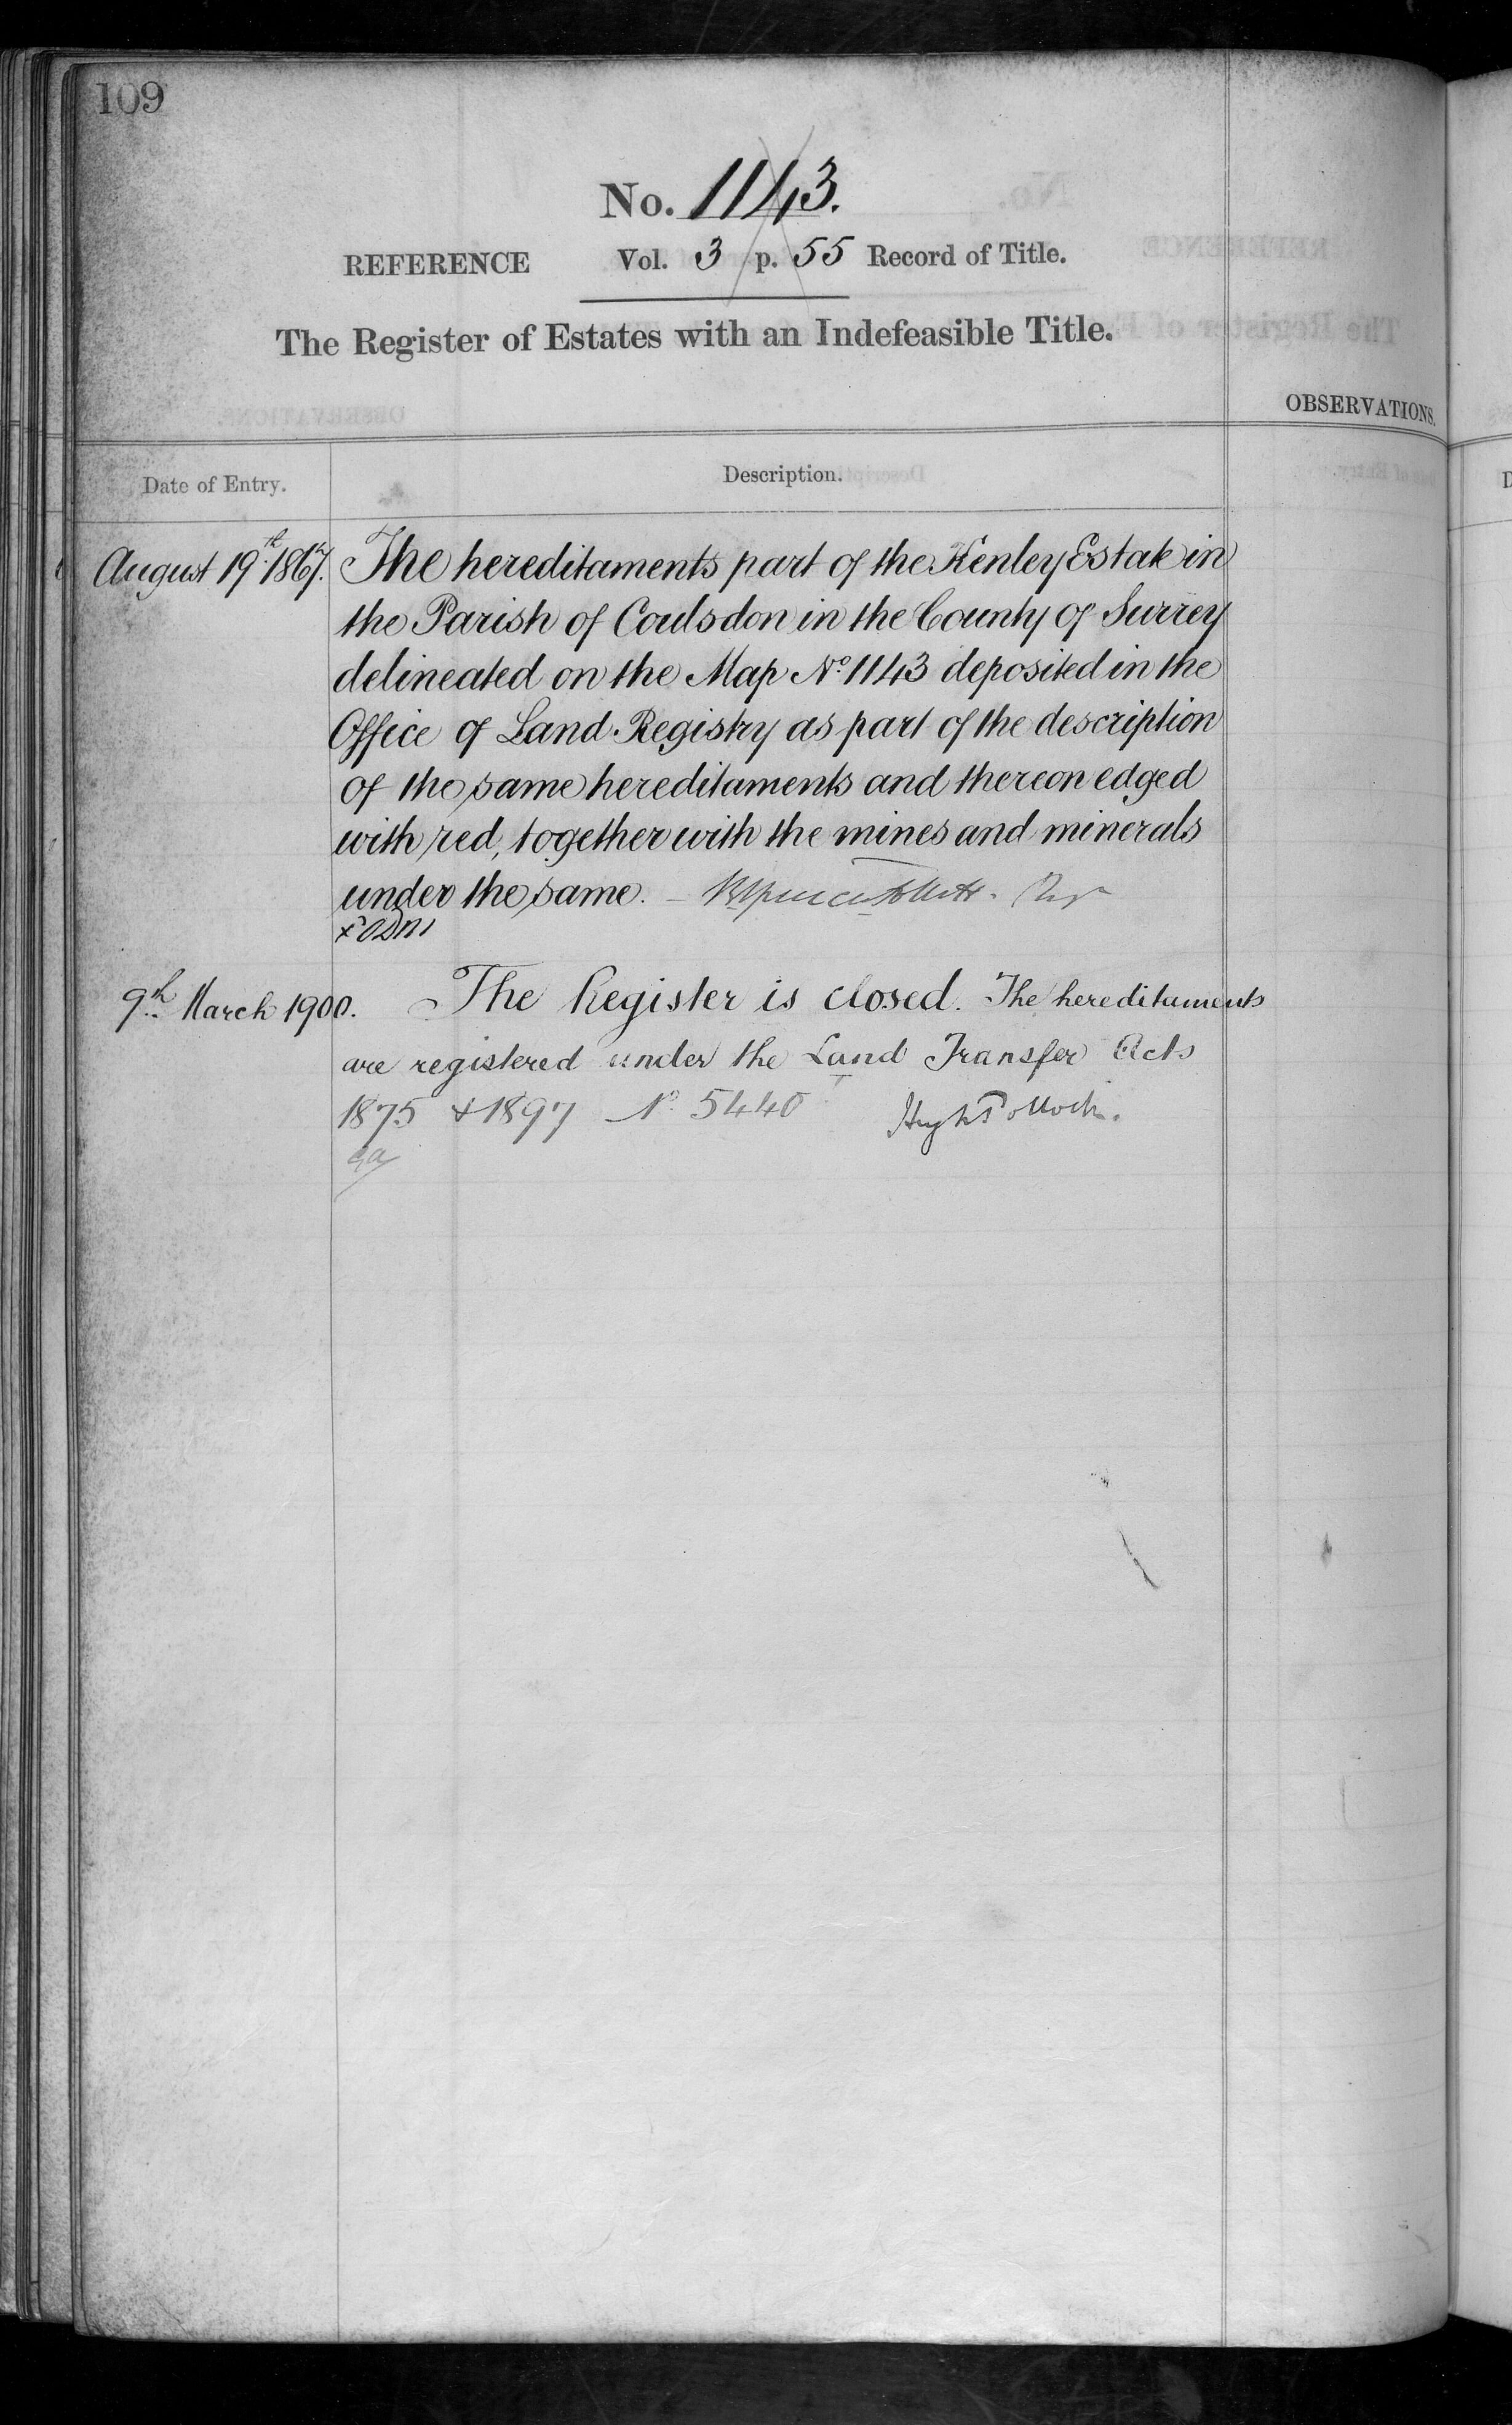 109
No. 1143.
REFERENCE Vol. 3 p. 55 Record of Title.
The Register of Estates with an Indefeasible Title.
OBSERVATIONS.
Date of Entry. Description.
August 19th 1867. The hereditaments part of the Kenley Estate in
the Parish of Coulsdon in the County of Surrey
delineated on the Map No. 1143 deposited in the
Office of Land Registry as part of the description
of the same hereditaments and thereon edged
with red, together with the mines and minerals
under the same.
9th March 1900. The Register is closed. The hereditaments
are registered under the Land Transfer Acts
1875 & 1897 No. 5440 Hugh Pollock.